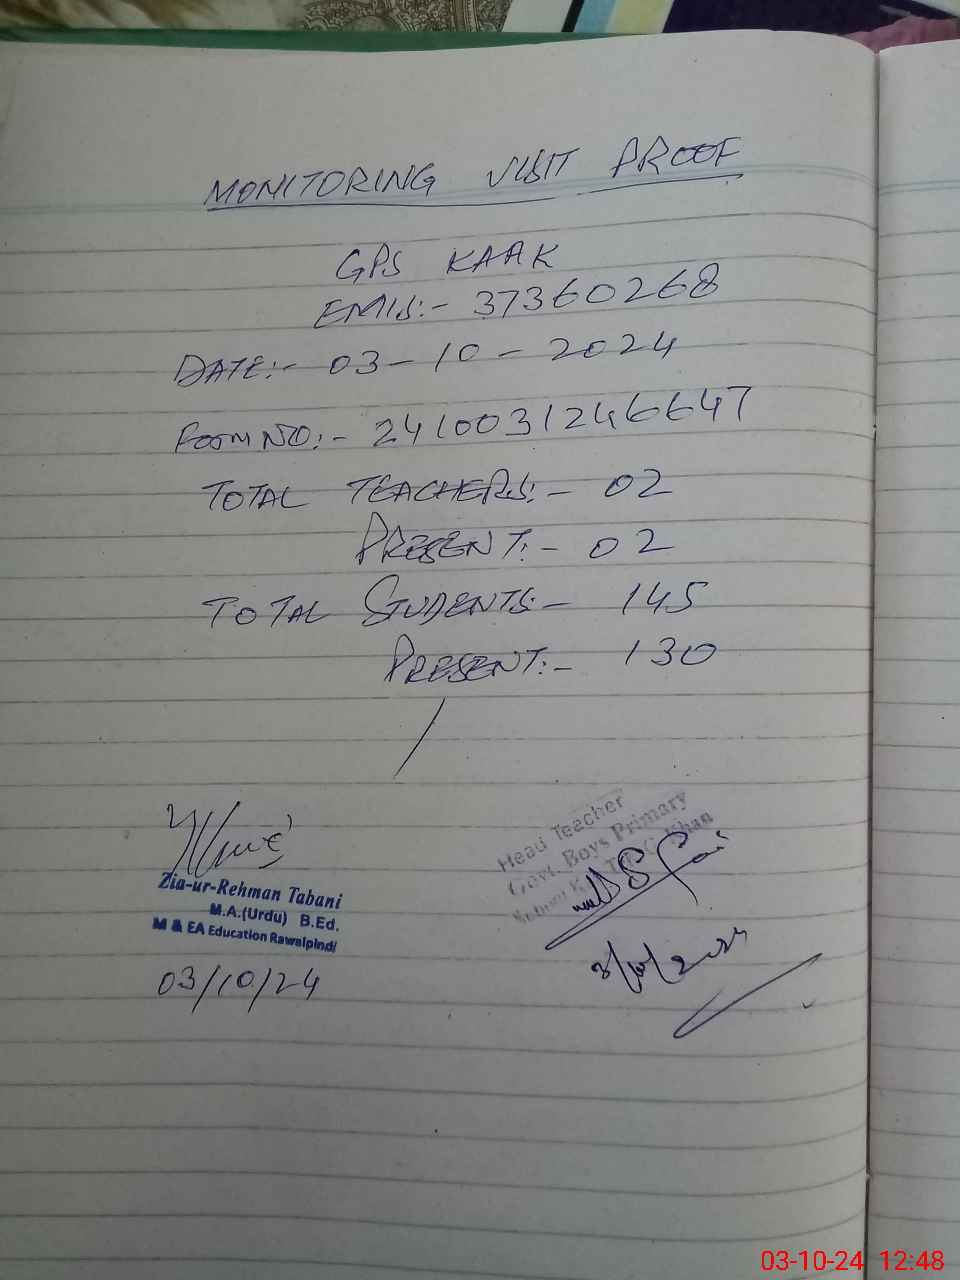 MONITORING VISIT PROOF
GPS KAAK
EMIS:- 37360268
DATE:- 03-10-2024
Form NO:- 2410031246647
TOTAL TEACHERS:- 02
PRESENT:- 02
TOTAL STUDENTS:- 145
PRESENT:- 130
Zia-ur-Rehman Tabani
M.A.(Urdu) B.Ed.
M & EA Education Rawalpindi
03/10/24
Head Teacher
Govt. Boys Primary
Khan
3/10/2024
03-10-24 12:48